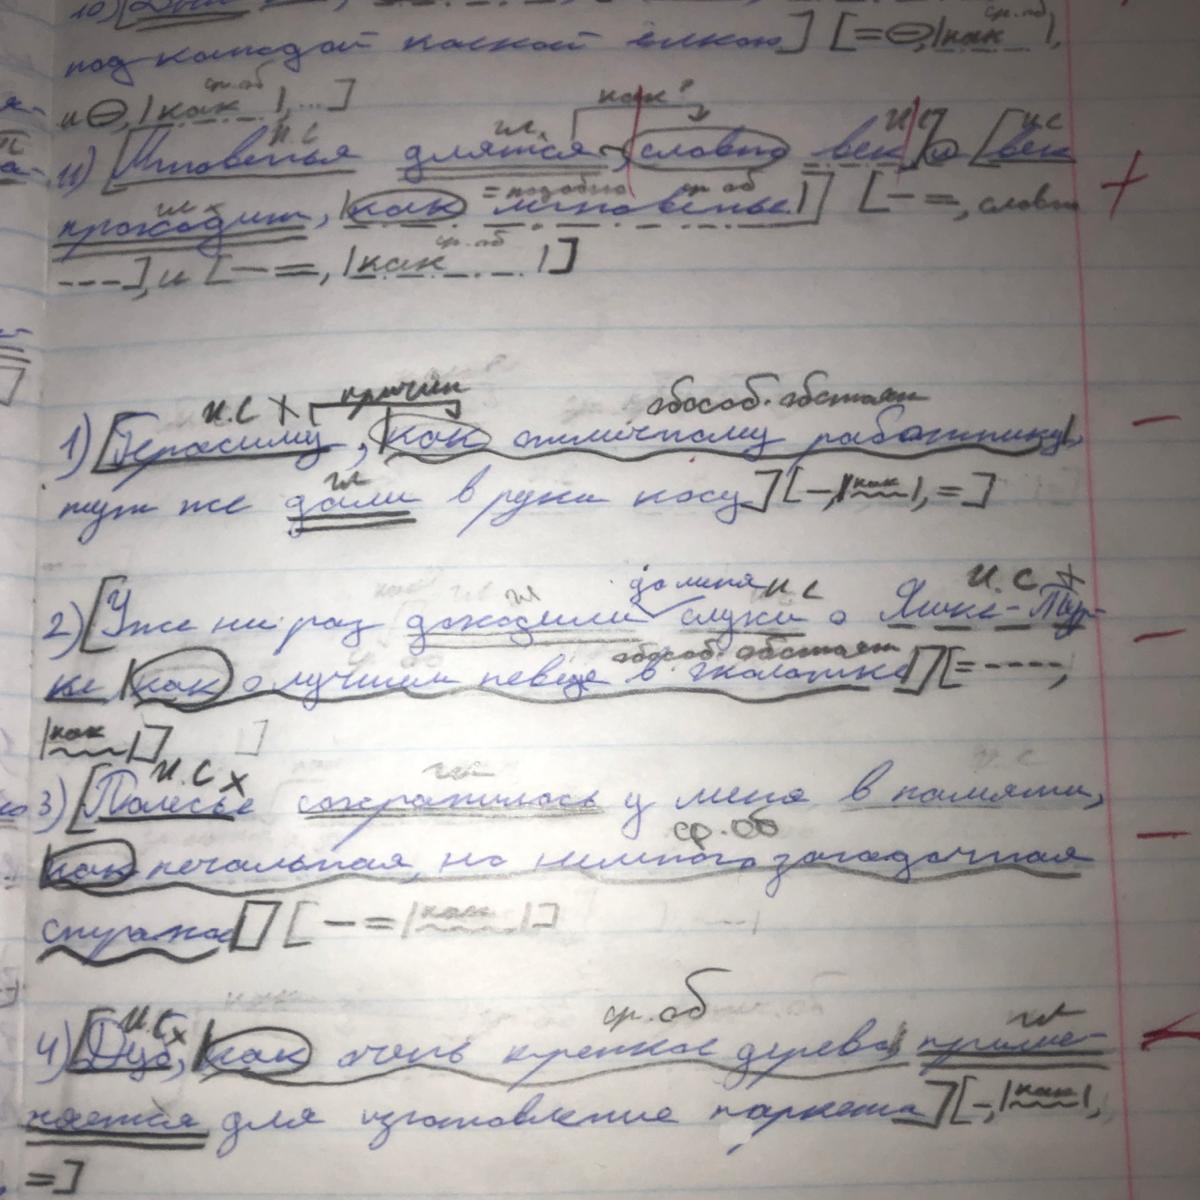 10)
под каждой ёлкою] [=⊖,|как|,
ср.об
и ⊖,|как|,...]
как?
11) [Мгновенья длятся, словно век] и [век
проходит, |как мгновенье|] [-=, словно
---], и [-=, |как|]
и.с причин обособ. обстоят
1) [Герасиму, |как отличному работнику|,
гл
тут же дали в руки косу] [-,|как|,=]
2) [Уже не раз доходили слухи о Яшке-Тур-
обособ. обстоят
ке |как о лучшем певце в околотке|] [=----,
|как|]
и.с гл
3) [Полесье сохранилось у меня в памяти,
ср.об
|как печальная, но немного загадочная
страна|] [-=|как|]
и.с ср.об гл
4) [Дуб, |как очень крепкое дерево| приме-
няется для изготовление паркета] [-,|как|,
=]